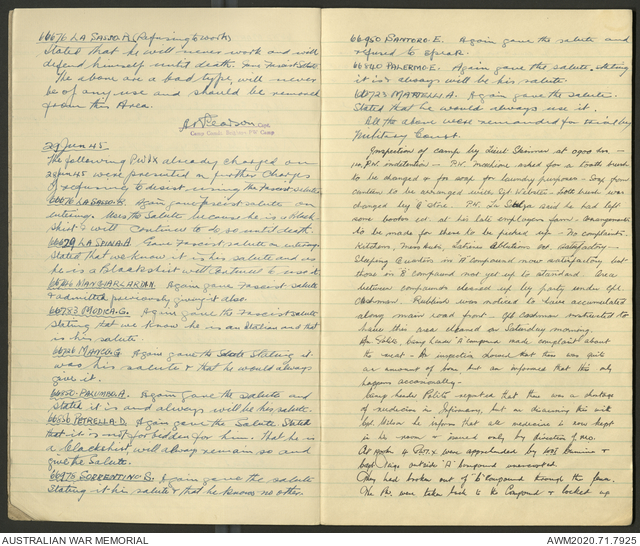 66676 LA SASSO. A. (Refusing to work)
Stated that he will never work and will
defend himself until death. Gave Fascist Salute
The above are a bad type, will never
be of any use and should be removed
from this Area.
Capt.
Camp Comdt. PW Camp
29 Jun 45
The following PWIX already charged on
28 Jun 45 were presented on further charges
of refusing to desist using the Fascist salute
66676 LA SASSO. A. Again gave fascist salute on
entering. Uses the Salute because he is a Black
Shirt & will continue to do so until death.
66629 LA SPINA. A. Gave Fascist salute on entering
Stated that we know it is his salute and as
he is a Blackshirt will continue to use it
MANGIARACINA. Again gave Fascist Salute
& admitted previously giving it also.
66783 MODICA. G. Again gave the Fascist salute
stating that we know he is an Italian and that
is his salute.
Again gave the Salute stating it
was his salute & that he would always
give it.
66850 PALUMBO. A. Again gave the salute and
stated it is and always will be his salute.
66856 PETRELLA. D. Again gave the Salute. Stated
that it is not forbidden for him. That he is
a Blackshirt, will always remain so and
give the Salute.
66975 SORRENTINO. S. Again gave the salute
stating it his salute & that he knows no other.
66950 SANTORO. E. Again gave the salute and
refused to speak.
66840 PALERMO. E. Again gave the salute, stating
it is & always will be his salute.
66723 MARTELLA. A. Again gave the salute.
Stated that he would always use it.
All the above were remanded for trial by
Military Court.
Inspection of camp by Lieut at 0900 hrs -
PW. in detention - PW. asked for a tooth brush
to be changed & for soap for laundry purposes - Soap from
canteen to be arranged with Sgt Webster - tooth brush was
changed by Q Store. P.W. La said he had left
some boots at his late employers farm - arrangements
to be made for these to be picked up - No complaints.
Kitchens, Mess huts, Latrines Ablutions etc. Satisfactory -
Sleeping Quarters in 'A' compound now satisfactory but
those in B' compound not yet up to standard. Area
between compounds cleaned up by party under Cpl.
Cashman. Rubbish was noticed to have accumulated
along main road front - Cpl Cashman instructed to
have this area cleaned on Saturday morning.
Camp Leader 'A' Compound made complaint about
the meat - An inspection showed that there was quite
an amount of bone but am informed that this only
happens occasionally -
Camp leader Politi reported that there was a shortage
of medicine in Infirmary, but on discussing this with
Cpl. Nelson he informs that all medicine is now kept
in his room & issued only by direction of M.O.
At 4 P.O.W. were apprehended by &
Capt outside 'A' Compound
They had broken out of 'B' Compound through the fence.
The Ps. were taken back to the Compound & locked up
AUSTRALIAN WAR MEMORIAL
AWM2020.71.7925